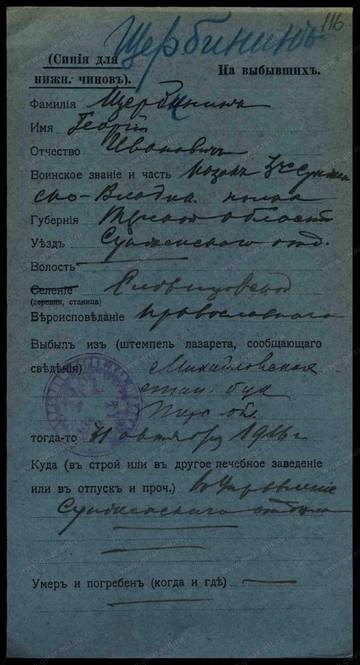 116
Щербининъ
(Синія для
нижн. чиновъ).
На выбывшихъ.
Фамилія Щербининъ
Имя Георгій
Отчество Ивановичъ
Воинское званіе и часть казакъ
Владик. полка
Губернія Терской области
Уѣздъ Сунженскаго отд.
Волость
Селеніе
(деревня, станица)
Вѣроисповѣданіе православнаго
Выбылъ изъ (штемпель лазарета, сообщающаго
свѣдѣнія) Михайловская
стан.
тогда-то 31 октября 1916 г
Куда (въ строй или въ другое лечебное заведеніе
или въ отпускъ и проч.) въ Управленіе
Сунженскаго отдѣла
Умеръ и погребенъ (когда и гдѣ)